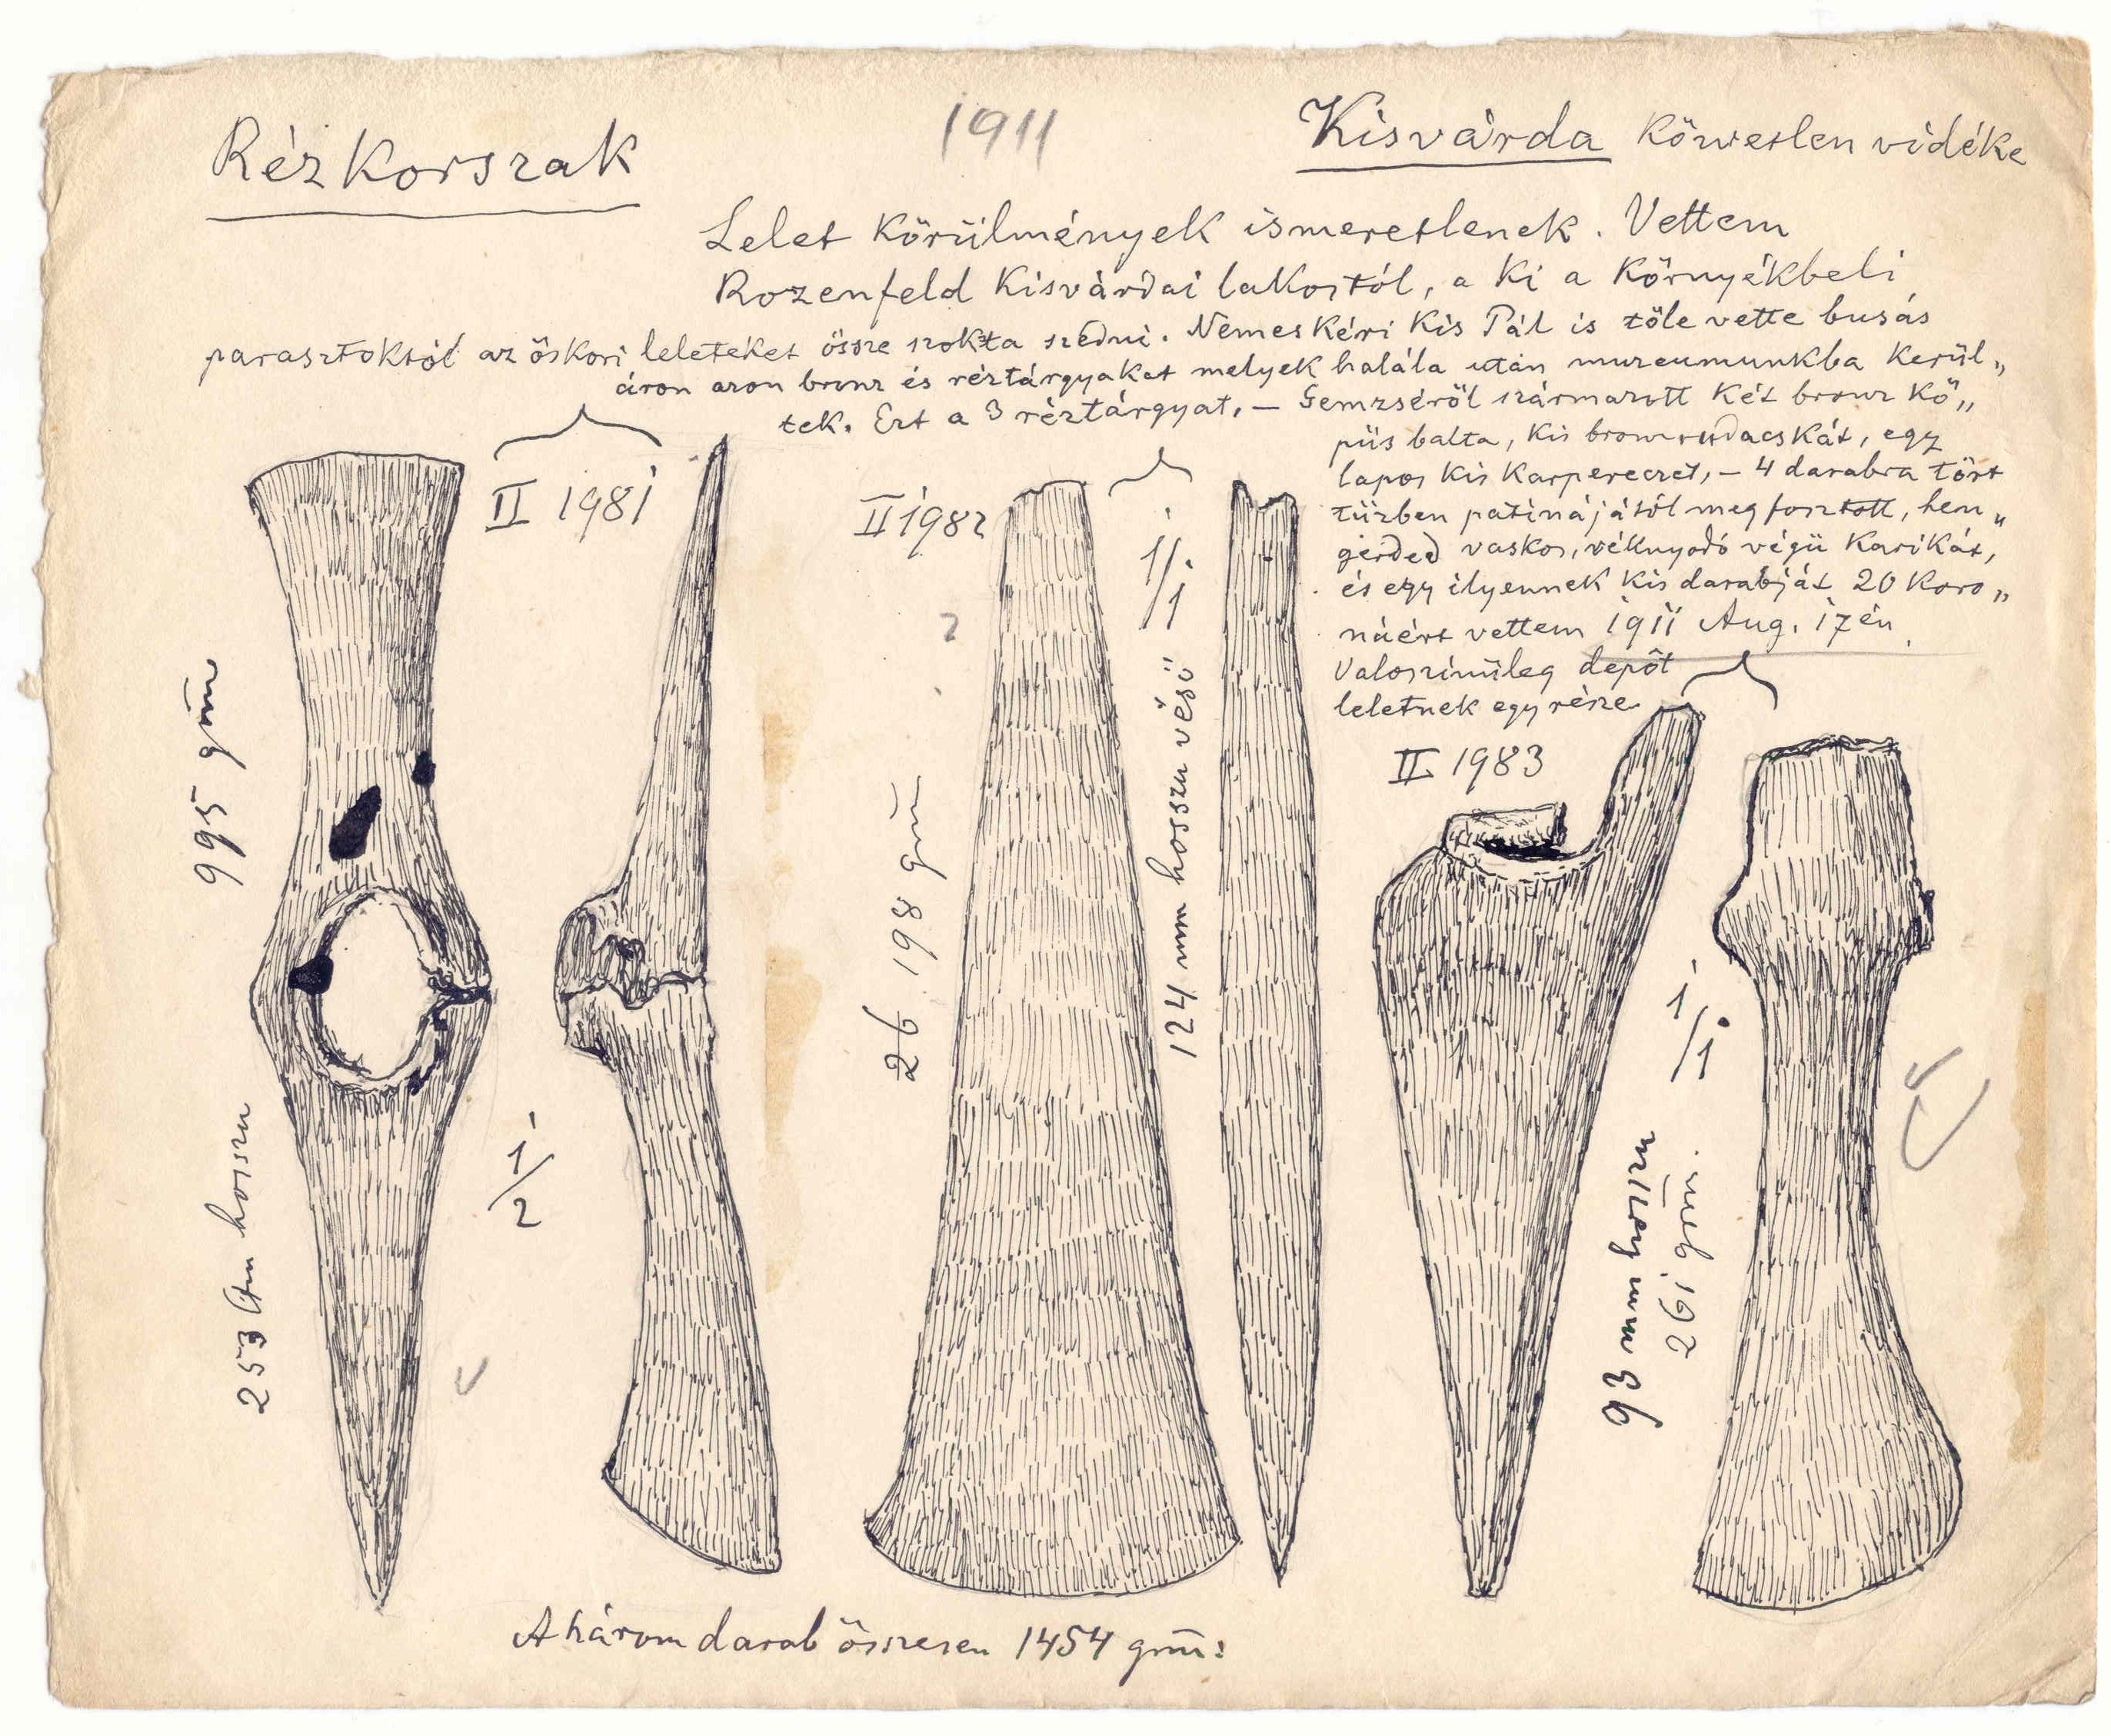 Rézkorszak
1911
Kisvárda közvetlen vidéke
Lelet körülmények ismeretlenek. Vettem
Rozenfeld Kisvárdai lakostól, a ki a környékbeli
parasztoktól az őskori leleteket össze szokta szedni. Nemeskéri Kis Pál is tőle vette busás
áron azon bronz és réztárgyakat melyek halála után muzeumunkba kerül„
tek. Ezt a 3 réztárgyat, – Gemzséről származott két bronz kö„
püs balta, kis bronz rudacskát, egy
lapos kis karpereczet, – 4 darabra tört
tüzben patinájától megfosztott, hen„
gerded vaskos, véknyodó végü karikát,
és egy ilyennek kis darabját 20 koro„
náért vettem 1911 Aug. 17én
Valoszinüleg depôt
leletnek egy része
II 1981
II 1982
1/1
II. 1983
995 grm
253 hosszu
1/2
?
26 198 grm
124 mm hosszu véső
1/1
93 mm hosszu
261 grm.
A három darab összesen 1454 grm: